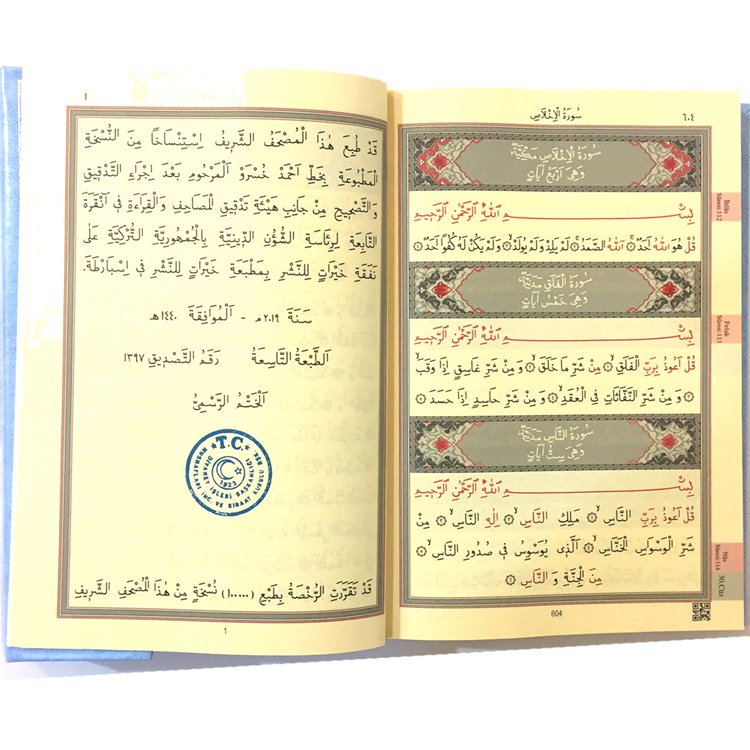 ٦٠٤
سُورَةُ الْاِخْلَاصِ
سُورَةُ الْاِخْلَاصِ مَكِّيَّةٌ
وَهِيَ اَرْبَعُ اٰيَاتٍ
بِسْمِ اللّٰهِ الرَّحْمٰنِ الرَّحِيمِ
قُلْ هُوَ اللّٰهُ اَحَدٌ ۝١ اَللّٰهُ الصَّمَدُ ۝٢ لَمْ يَلِدْ وَلَمْ يُولَدْ ۝٣ وَلَمْ يَكُنْ لَهُ كُفُوًا اَحَدٌ ۝٤
سُورَةُ الْفَلَقِ مَدَنِيَّةٌ
وَهِيَ خَمْسُ اٰيَاتٍ
بِسْمِ اللّٰهِ الرَّحْمٰنِ الرَّحِيمِ
قُلْ اَعُوذُ بِرَبِّ الْفَلَقِ ۝١ مِنْ شَرِّ مَا خَلَقَ ۝٢ وَ مِنْ شَرِّ غَاسِقٍ اِذَا وَقَبَ
۝٣ وَ مِنْ شَرِّ النَّفَّاثَاتِ فِي الْعُقَدِ ۝٤ وَ مِنْ شَرِّ حَاسِدٍ اِذَا حَسَدَ ۝٥
سُورَةُ النَّاسِ مَدَنِيَّةٌ
وَهِيَ سِتُّ اٰيَاتٍ
بِسْمِ اللّٰهِ الرَّحْمٰنِ الرَّحِيمِ
قُلْ اَعُوذُ بِرَبِّ النَّاسِ ۝١ مَلِكِ النَّاسِ ۝٢ اِلٰهِ النَّاسِ ۝٣ مِنْ
شَرِّ الْوَسْوَاسِ الْخَنَّاسِ ۝٤ اَلَّذِي يُوَسْوِسُ فِي صُدُورِ النَّاسِ ۝٥
مِنَ الْجِنَّةِ وَ النَّاسِ ۝٦
604
İhlâs
Sûresi:112
Felak
Sûresi:113
Nâs
Sûresi:114
30.Cüz
١
قَدْ طُبِعَ هٰذَا الْمُصْحَفُ الشَّرِيفُ اِسْتِنْسَاخًا مِنَ النُّسْخَةِ
الْمَطْبُوعَةِ بِخَطِّ اَحْمَدْ خُسْرَوْ الْمَرْحُومِ بَعْدَ اِجْرَاءِ التَّدْقِيقِ
وَالتَّصْحِيحِ مِنْ جَانِبِ هَيْئَةِ تَدْقِيقِ الْمَصَاحِفِ وَالْقِرَاءَةِ فِي اَنْقَرَةَ
التَّابِعَةِ لِرِئَاسَةِ الشُّؤُنِ الدِّينِيَّةِ بِالْجُمْهُورِيَّةِ التُّرْكِيَّةِ عَلَى
نَفَقَةِ خَيْرَاتٍ لِلنَّشْرِ بِمَطْبَعَةِ خَيْرَاتٍ لِلنَّشْرِ فِي اِسْبَارْطَةَ.
سَنَةَ ٢٠١٩م - اَلْمُوَافِقَةَ ١٤٤٠هـ
اَلطَّبْعَةُ التَّاسِعَةُ رَقَمُ التَّصْدِيقِ ١٣٩٧
اَلْخَتْمُ الرَّسْمِيُّ
T.C.
DİYANET İŞLERİ BAŞKANLIĞI
MUSHAFLARI İNC. VE KIRAAT KURULU BŞK.
1923
قَدْ تَقَرَّرَتِ الرُّخْصَةُ بِطَبْعِ (١٠٠٠٠) نُسْخَةٍ مِنْ هٰذَا الْمُصْحَفِ الشَّرِيفِ
1